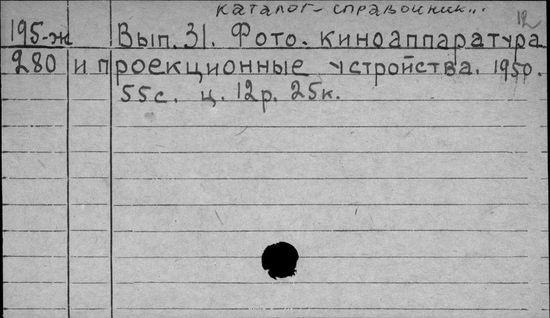 каталог-справочник...
12
195-ж Вып. 31. Фото-киноаппаратура
280 и проекционные устройства. 1950.
55с. ц. 12р. 25к.